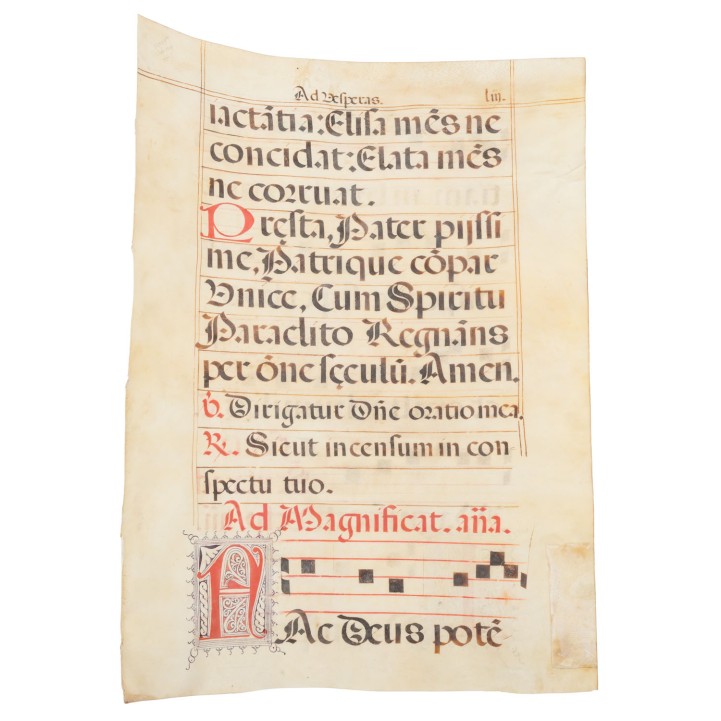 Ad Veſperas. liij.
iactãtia: Eliſa mẽs ne
concidat: Elata mẽs
ne corruat.
Pręſta, Pater pijſſi
me, Patrique cõpar
Vnice, Cum Spiritu
Paraclito Regnãns
per õne ſęculũ. Amen.
℣. Dirigatur Dñe oratio mea.
℟. Sicut incensum in con
ſpectu tuo.
Ad Magnificat. aña.
FAc Deus potẽ